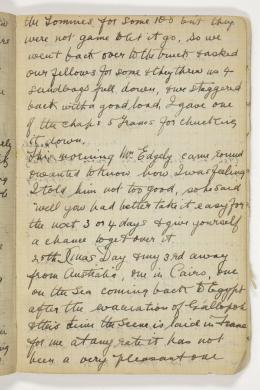 the Tommies for some 100 but they
were not game to let it go, so we
went back over to the truck & asked
our fellows for some & they threw us 4
sandbags full down, we staggered
back with a good load, I gave one
of the chaps 5 Francs for chucking
it down.
This morning Mr. Edgely came round
& wanted to know how I was feeling
I told him not too good, so he said
"well you had better take it easy for
the next 3 or 4 days & give yourself
a chance to get over it
25th Xmas Day & my 3rd away
from Australia, one in Cairo, one
on the Sea coming back to Egypt
after the evacuation of Gallipoli
& this time the Scene is laid in France
for me at any rate it has not
been a very pleasant one